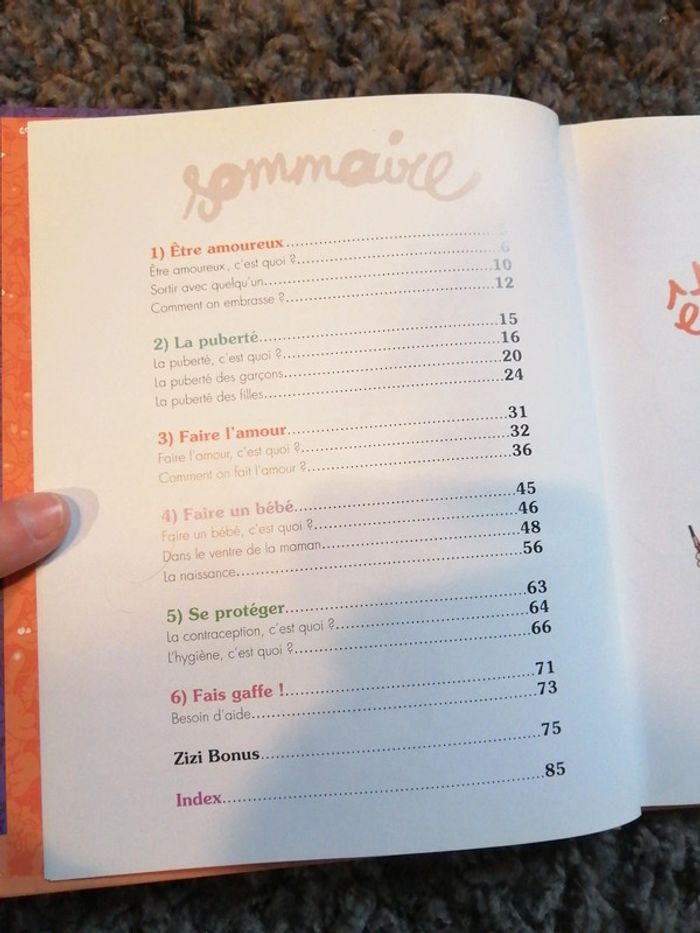 sommaire
1) Être amoureux
Être amoureux, c'est quoi ? 6
Sortir avec quelqu'un 10
Comment on embrasse ? 12
2) La puberté 15
La puberté, c'est quoi ? 16
La puberté des garçons 20
La puberté des filles 24
3) Faire l'amour 31
Faire l'amour, c'est quoi ? 32
Comment on fait l'amour ? 36
4) Faire un bébé 45
Faire un bébé, c'est quoi ? 46
Dans le ventre de la maman 48
La naissance 56
5) Se protéger 63
La contraception, c'est quoi ? 64
L'hygiène, c'est quoi ? 66
6) Fais gaffe ! 71
Besoin d'aide 73
Zizi Bonus 75
Index 85